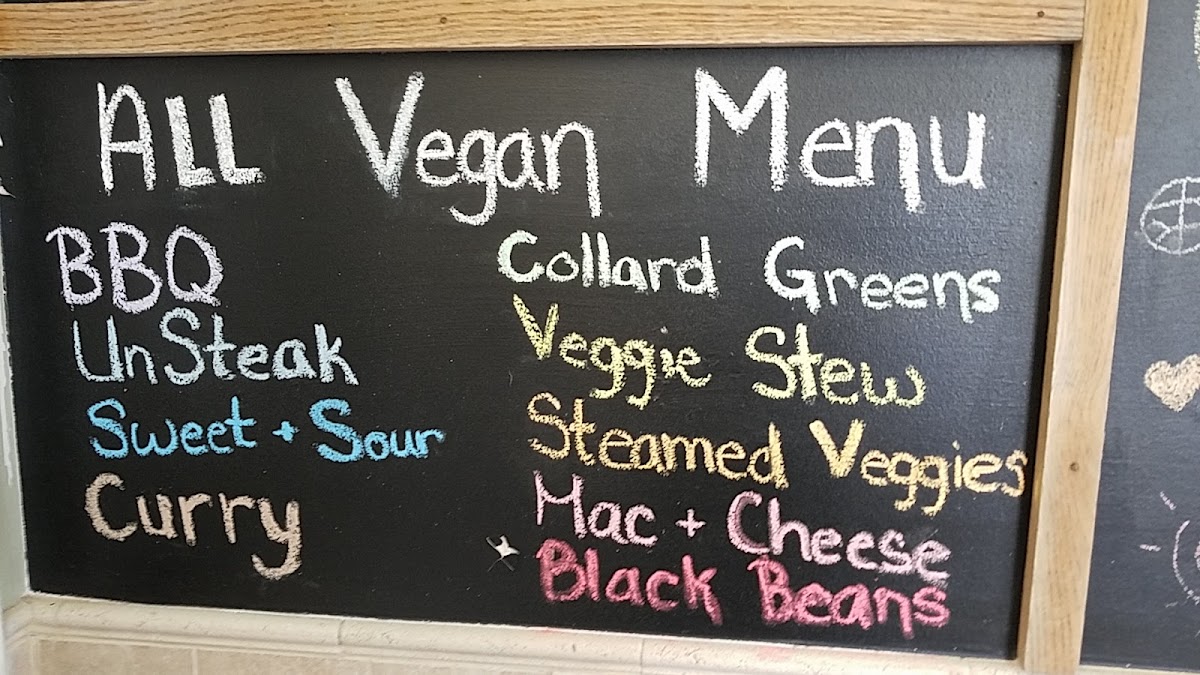 ALL Vegan Menu
BBQ
UnSteak
Sweet + Sour
Curry
Collard Greens
Veggie Stew
Steamed Veggies
Mac + Cheese
Black Beans